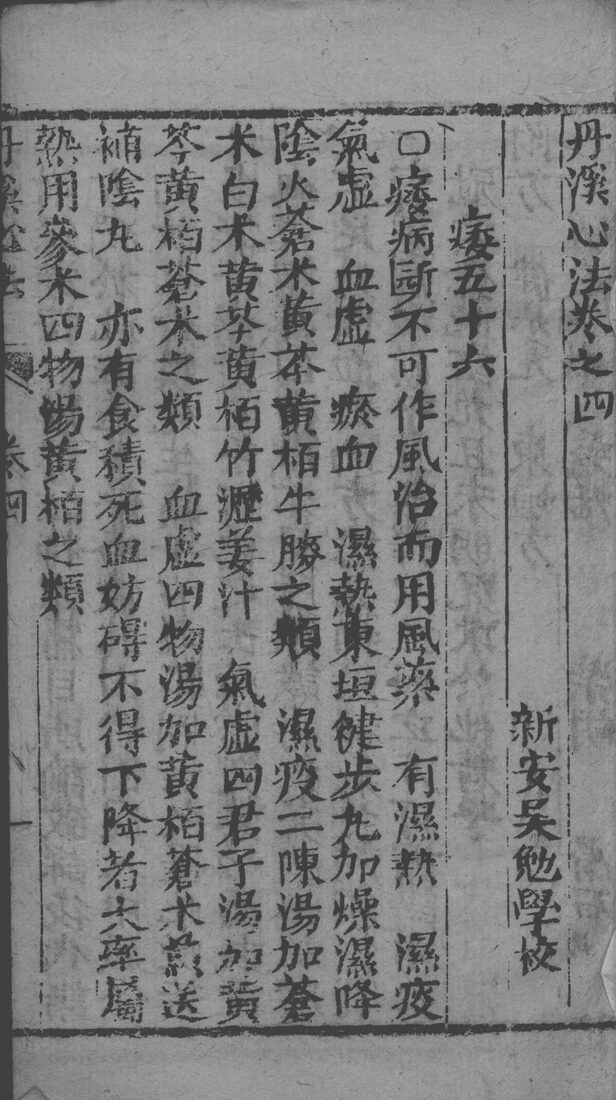 丹溪心法卷之四
新安吴勉學校
痿五十六
口痿病斷不可作風治而用風藥 有濕熱 濕痰
氣虛 血虛 瘀血 濕熱東垣健步丸加燥濕降
陰火蒼术黃芩黃栢牛膝之類 濕痰二陳湯加蒼
术白术黃芩黃栢竹瀝姜汁 氣虛四君子湯加黃
芩黃栢蒼术之類 血虛四物湯加黃栢蒼术煎送
補陰丸 亦有食積死血妨碍不得下降者大率屬
熱用參术四物湯黃栢之類
丹溪心法 卷四 一